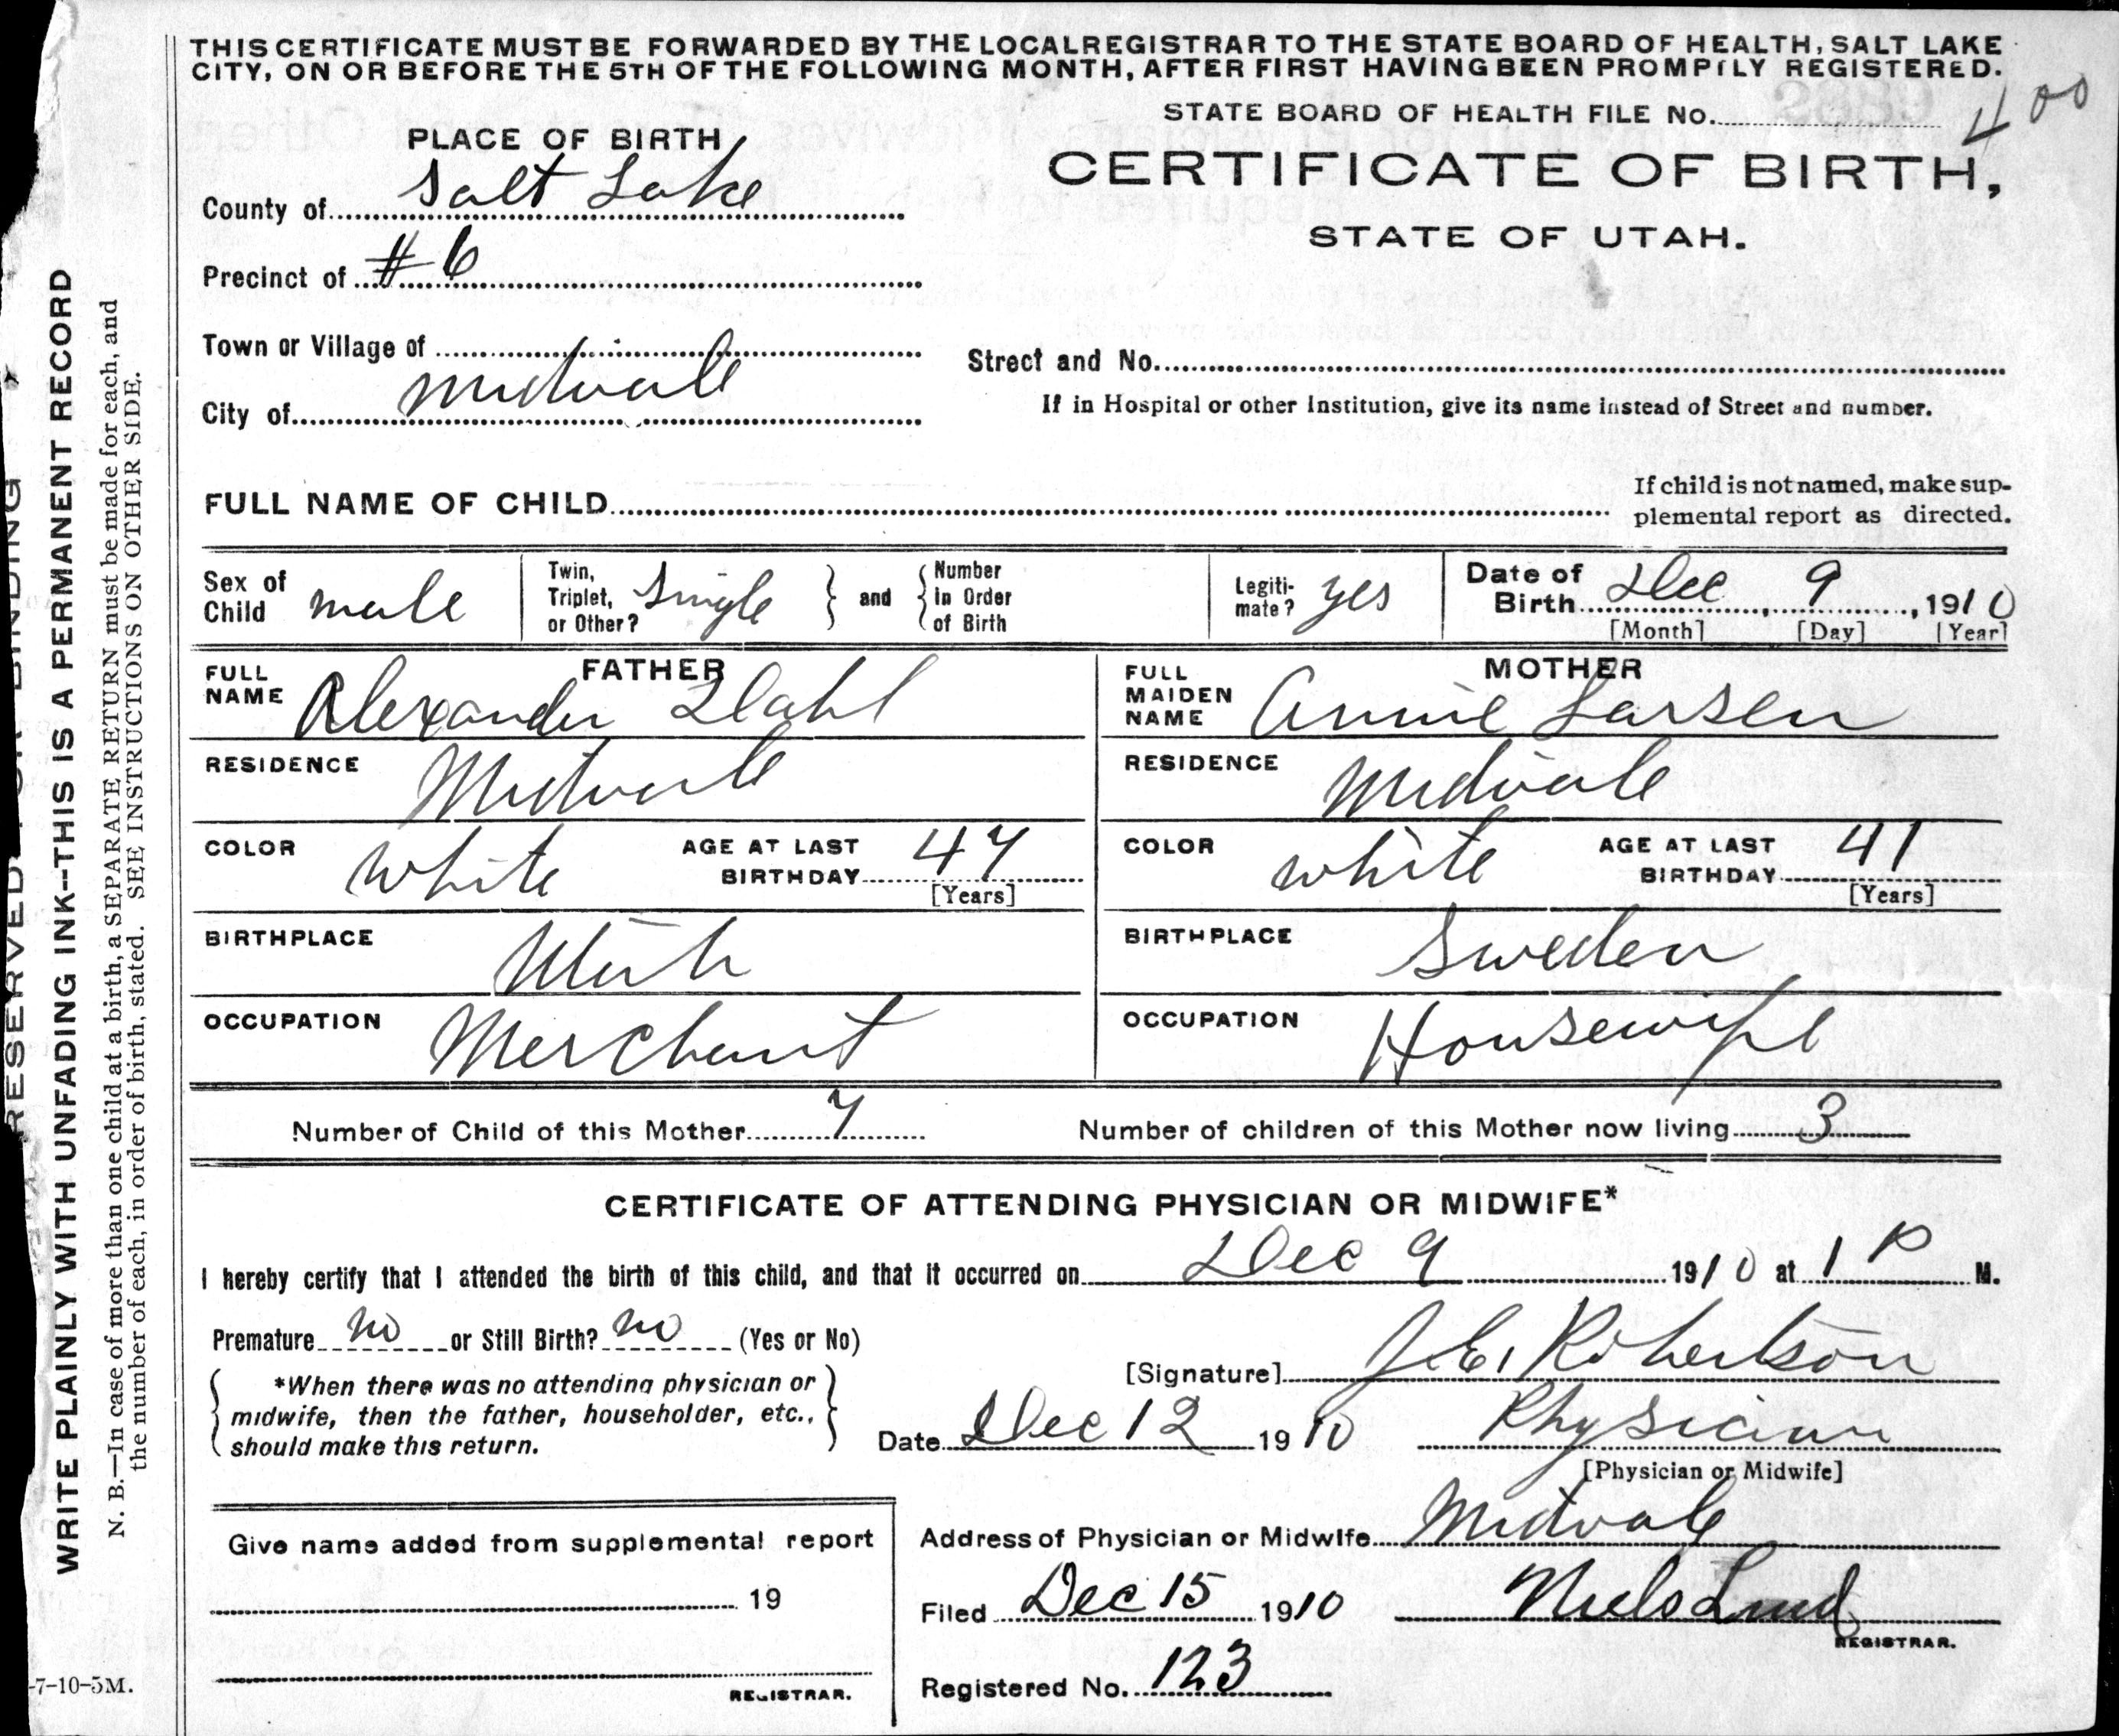 THIS CERTIFICATE MUST BE FORWARDED BY THE LOCAL REGISTRAR TO THE STATE BOARD OF HEALTH, SALT LAKE
CITY, ON OR BEFORE THE 5TH OF THE FOLLOWING MONTH, AFTER FIRST HAVING BEEN PROMPTLY REGISTERED.
STATE BOARD OF HEALTH FILE No. 400
PLACE OF BIRTH
CERTIFICATE OF BIRTH,
STATE OF UTAH.
County of Salt Lake
Precinct of #6
Town or Village of
Street and No.
City of Midvale
If in Hospital or other Institution, give its name instead of Street and number.
FULL NAME OF CHILD
If child is not named, make sup-
plemental report as directed.
Sex of Child male
Twin, Triplet, or Other? Single
and
Number in Order of Birth
Legiti-mate? yes
Date of Birth Dec, 9, 1910
[Month] [Day] [Year]
FATHER
FULL NAME Alexander Dahl
RESIDENCE Midvale
COLOR white AGE AT LAST BIRTHDAY 47
[Years]
BIRTHPLACE Utah
OCCUPATION Merchant
MOTHER
FULL MAIDEN NAME Annie Larsen
RESIDENCE Midvale
COLOR white AGE AT LAST BIRTHDAY 41
[Years]
BIRTHPLACE Sweden
OCCUPATION Housewife
Number of Child of this Mother 7
Number of children of this Mother now living 3
CERTIFICATE OF ATTENDING PHYSICIAN OR MIDWIFE*
I hereby certify that I attended the birth of this child, and that it occurred on Dec 9 1910 at 1 P M.
Premature no or Still Birth? no (Yes or No)
*When there was no attending physician or
midwife, then the father, householder, etc.,
should make this return.
[Signature] J.E. Robertson
Date Dec 12 1910 Physician
[Physician or Midwife]
Address of Physician or Midwife Midvale
Filed Dec 15 1910 Niels Lind
REGISTRAR.
Registered No. 123
Give name added from supplemental report
19
REGISTRAR.
RESERVED FOR BINDING
WRITE PLAINLY WITH UNFADING INK--THIS IS A PERMANENT RECORD
N. B.—In case of more than one child at a birth, a SEPARATE RETURN must be made for each, and
the number of each, in order of birth, stated. SEE INSTRUCTIONS ON OTHER SIDE.
-7-10-5M.